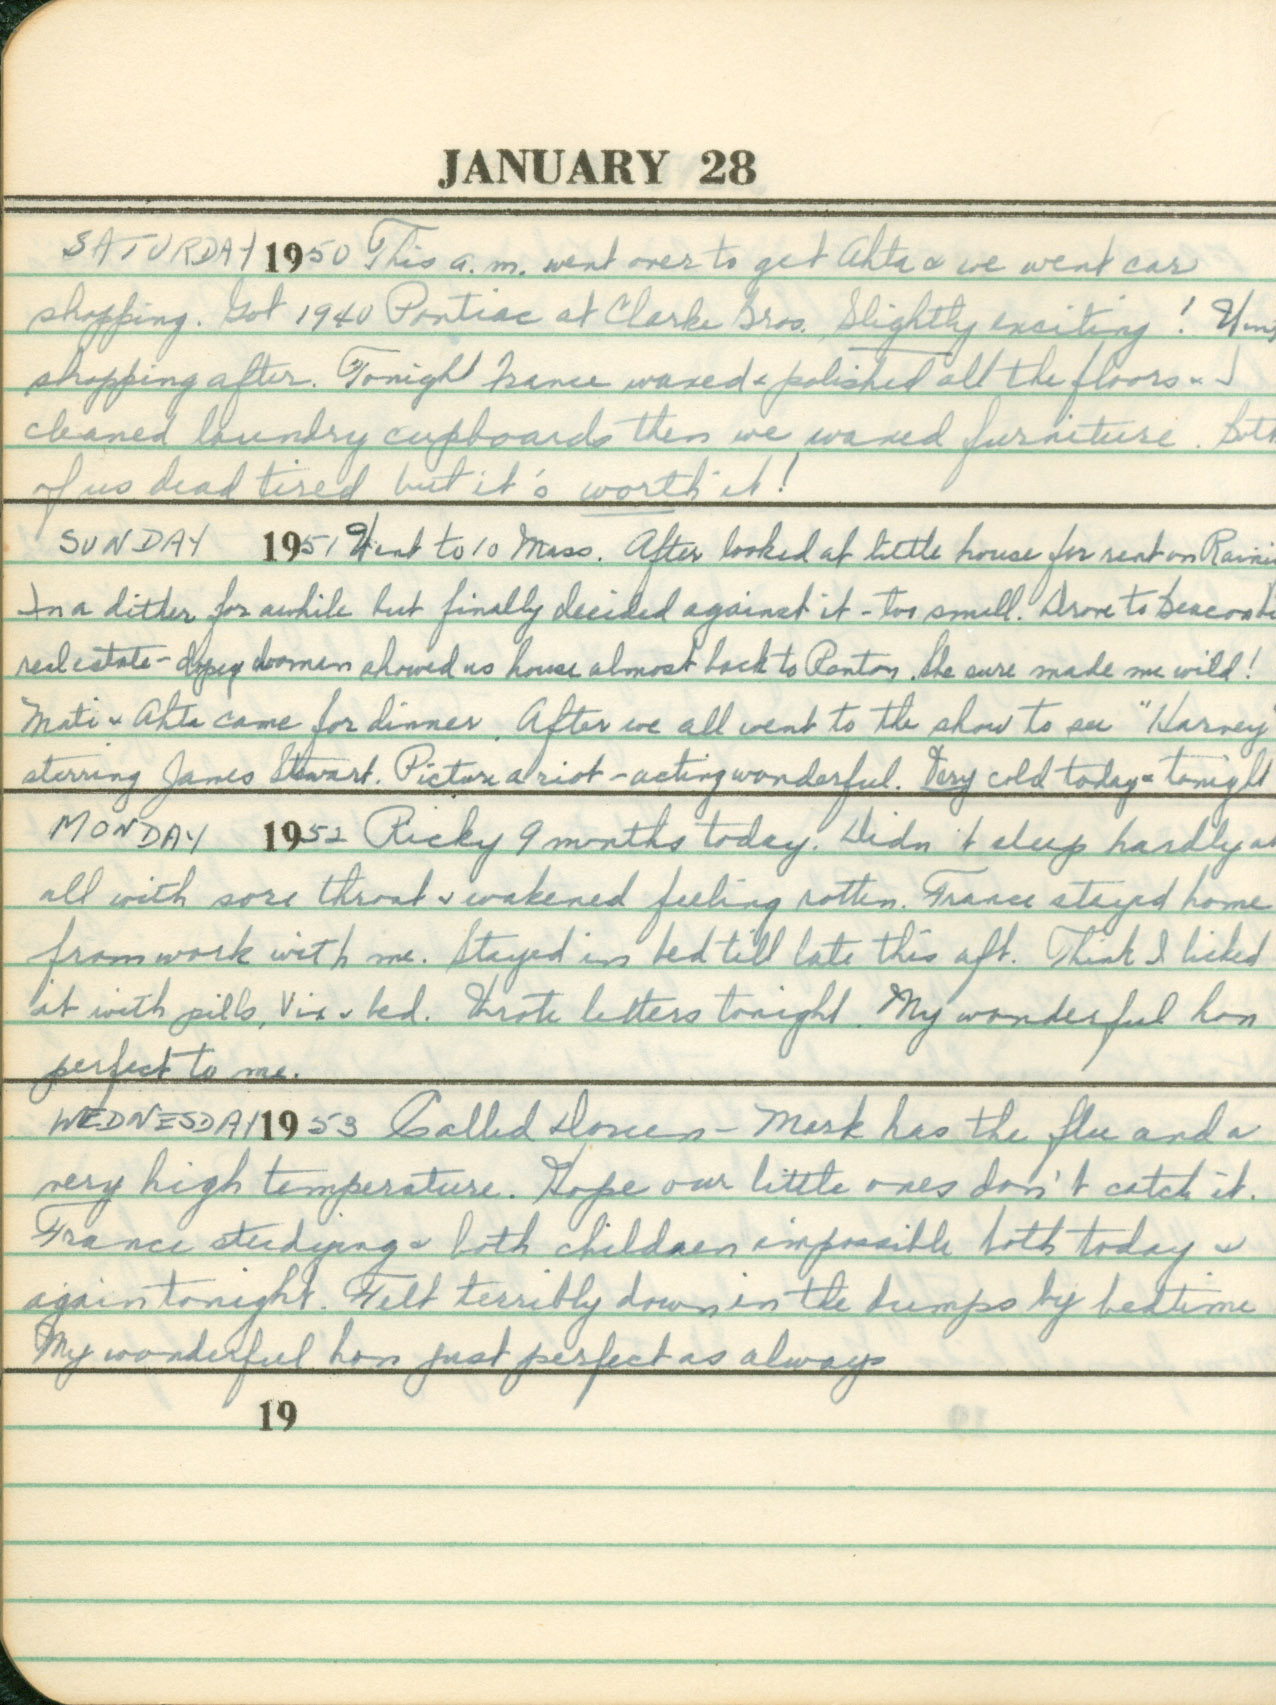 JANUARY 28
SATURDAY 1950 This a.m. went over to get Ahta & we went car
shopping. Got 1940 Pontiac at Clarke Bros. Slightly exciting!
shopping after. Tonight France waxed & polished all the floors & I
cleaned laundry cupboards then we waxed furniture. Both
of us dead tired but it's worth it!
SUNDAY 1951 Went to 10 Mass. After looked at little house for rent on Raini
In a dither for awhile but finally decided against it - too small. Drove to Beacon
real estate - dopey woman showed us house almost back to Renton. She sure made me wild!
Mati & Ahta came for dinner. After we all went to the show to see "Harvey"
starring James Stewart. Picture a riot - acting wonderful. Very cold today & tonight
MONDAY 1952 Ricky 9 months today. Didn't sleep hardly at
all with sore throat & wakened feeling rotten. France stayed home
from work with me. Stayed in bed till late this aft. Think I licked
it with pills, Vix & bed. Wrote letters tonight. My wonderful hon
perfect to me.
WEDNESDAY 1953 Called Doreen - Mark has the flu and a
very high temperature. Hope our little ones don't catch it.
France studying & both children impossible both today &
again tonight. Felt terribly down in the dumps by bedtime
My wonderful hon just perfect as always
19